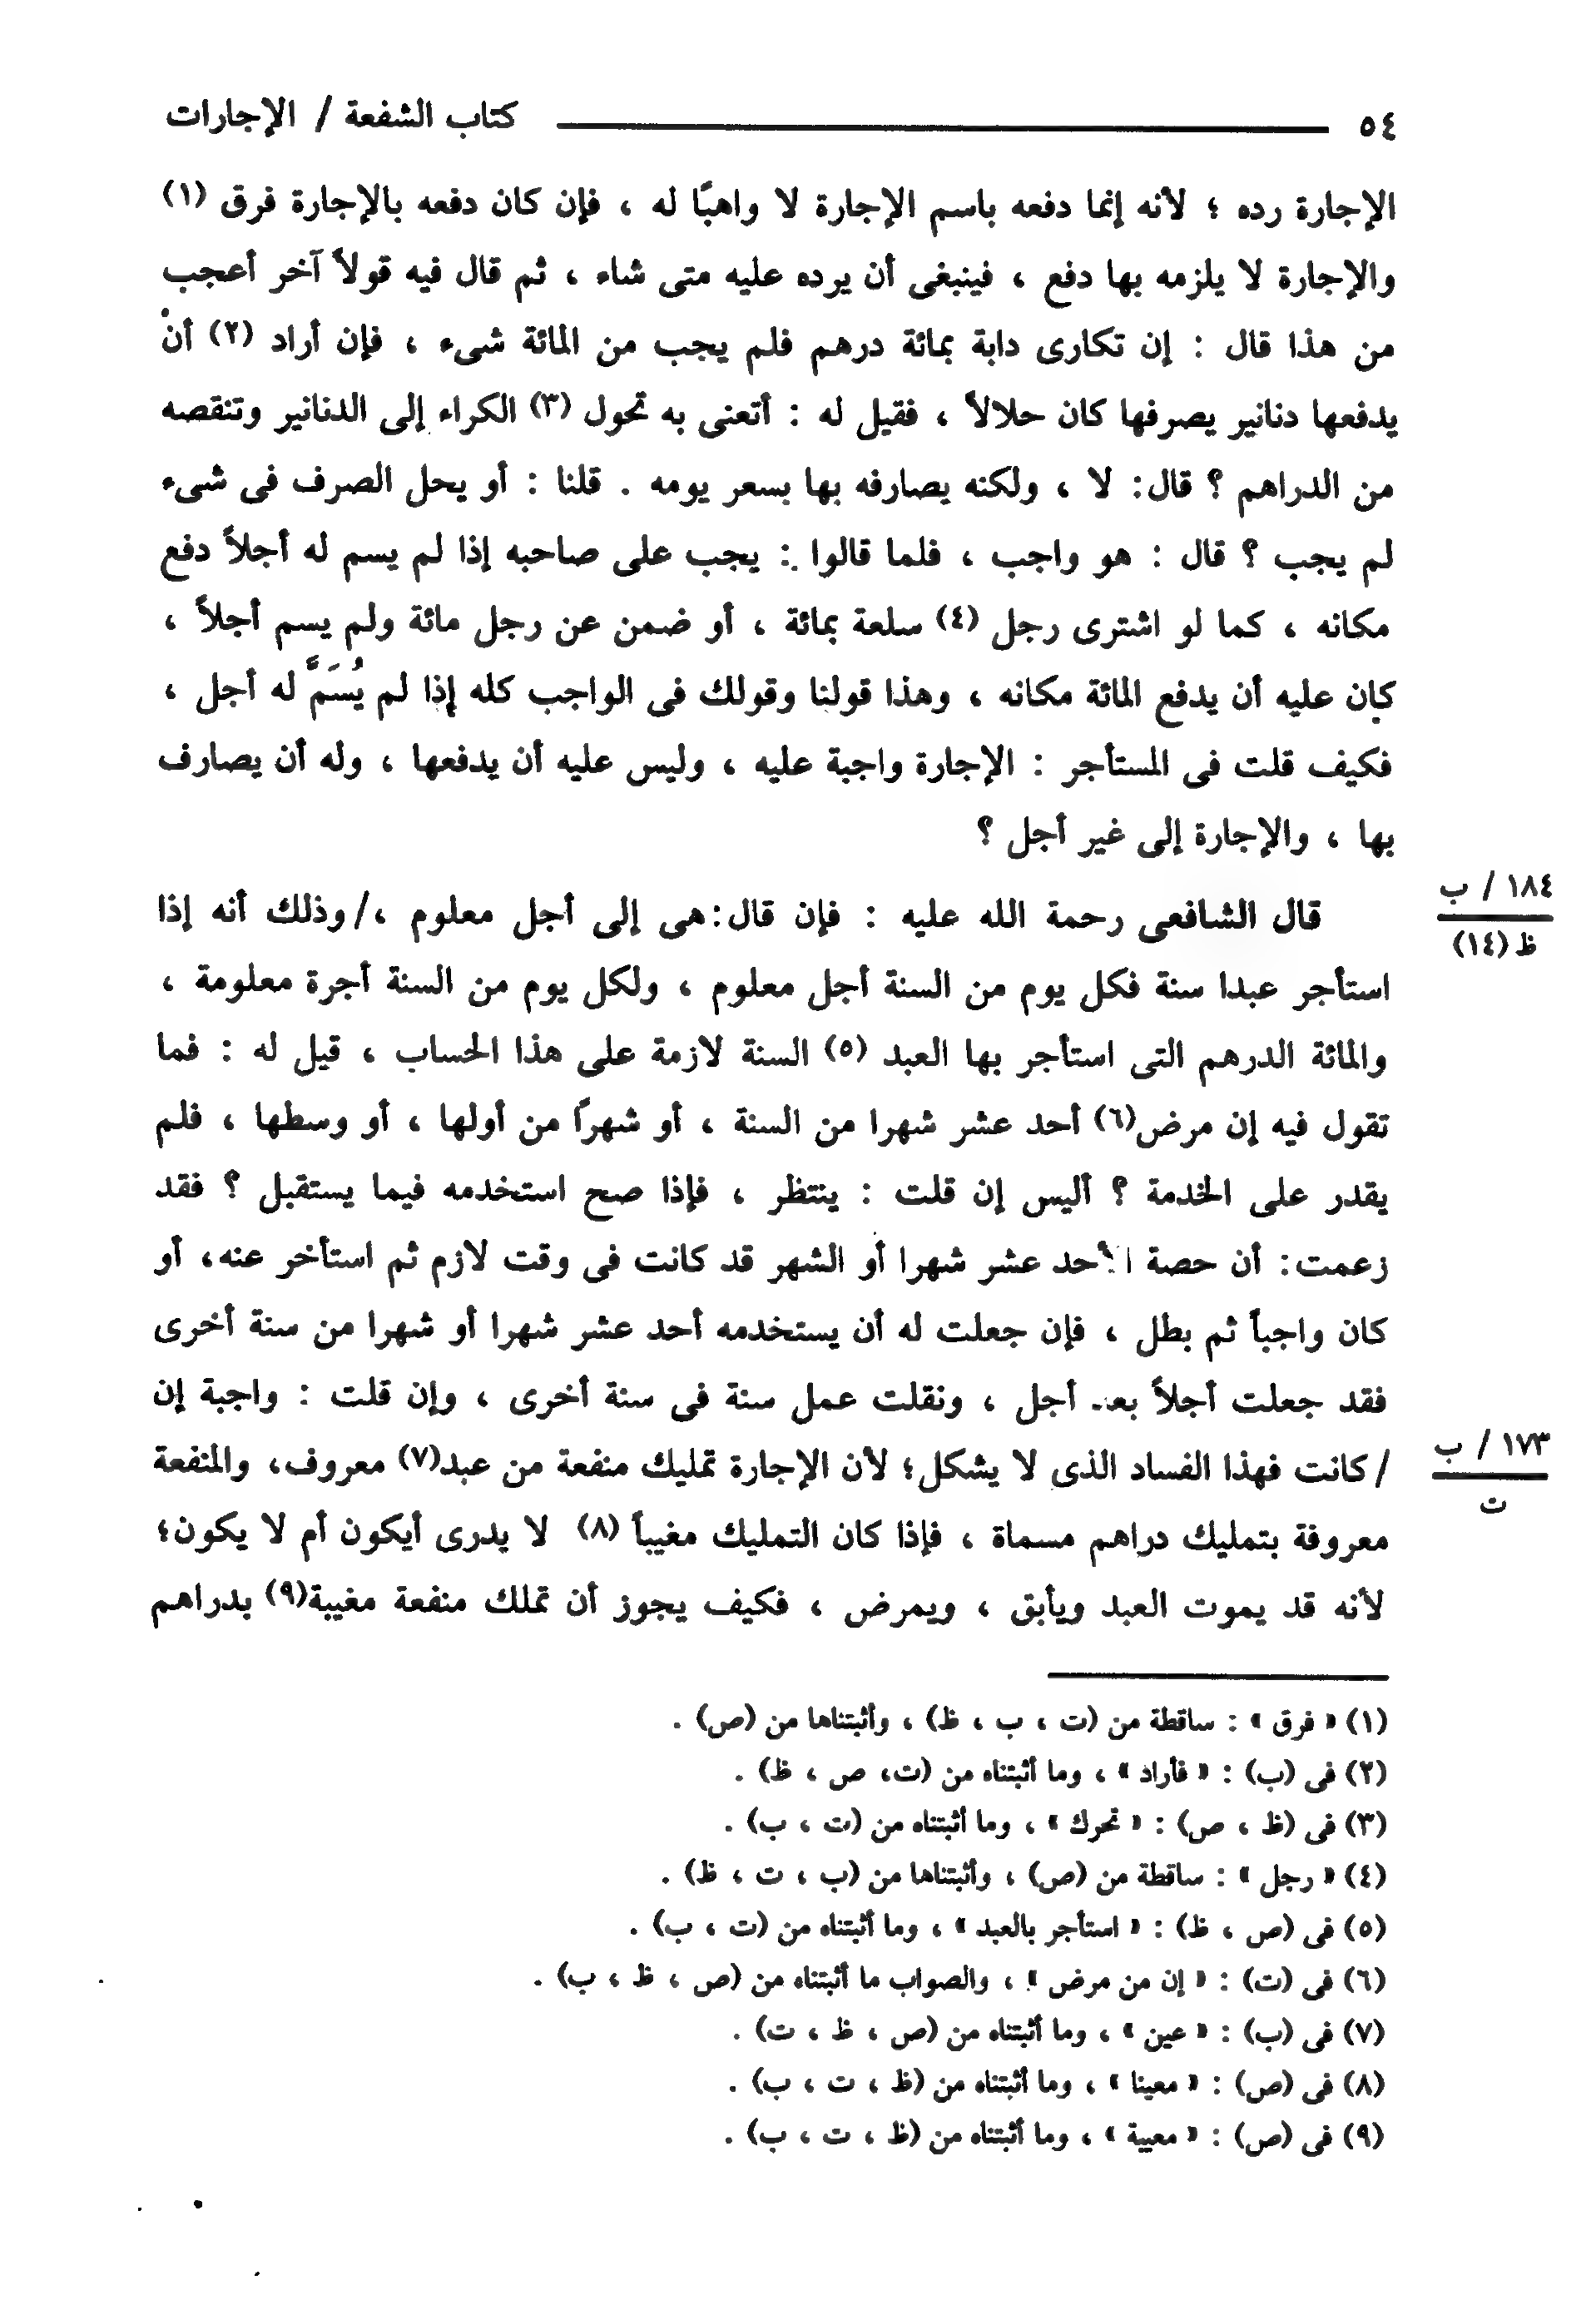 ٥٤ كتاب الشفعة / الإجارات
الإجارة رده ؛ لأنه إنما دفعه باسم الإجارة لا واهبًا له ، فإن كان دفعه بالإجارة فرق (١)
والإجارة لا يلزمه بها دفع ، فينبغى أن يرده عليه متى شاء ، ثم قال فيه قولاً آخر أعجب
من هذا قال : إن تكارى دابة بمائة درهم فلم يجب من المائة شىء ، فإن أراد (٢) أنْ
يدفعها دنانير يصرفها كان حلالاً ، فقيل له : أتعنى به تحول (٣) الكراء إلى الدنانير وتنقصه
من الدراهم ؟ قال: لا ، ولكنه يصارفه بها بسعر يومه . قلنا : أو يحل الصرف فى شىء
لم يجب ؟ قال : هو واجب ، فلما قالوا : يجب على صاحبه إذا لم يسم له أجلاً دفع
مكانه ، كما لو اشترى رجل (٤) سلعة بمائة ، أو ضمن عن رجل مائة ولم يسم أجلاً ،
كان عليه أن يدفع المائة مكانه ، وهذا قولنا وقولك فى الواجب كله إذا لم يُسَمَّ له أجل ،
فكيف قلت فى المستأجر : الإجارة واجبة عليه ، وليس عليه أن يدفعها ، وله أن يصارف
بها ، والإجارة إلى غير أجل ؟
١٨٤ / ب
ظ (١٤)
قال الشافعى رحمة الله عليه : فإن قال: هى إلى أجل معلوم ،/ وذلك أنه إذا
استأجر عبدا سنة فكل يوم من السنة أجل معلوم ، ولكل يوم من السنة أجرة معلومة ،
والمائة الدرهم التى استأجر بها العبد (٥) السنة لازمة على هذا الحساب ، قيل له : فما
تقول فيه إن مرض(٦) أحد عشر شهرا من السنة ، أو شهرًا من أولها ، أو وسطها ، فلم
يقدر على الخدمة ؟ أليس إن قلت : ينتظر ، فإذا صح استخدمه فيما يستقبل ؟ فقد
زعمت: أن حصة الأحد عشر شهرا أو الشهر قد كانت فى وقت لازم ثم استأخر عنه، أو
كان واجباً ثم بطل ، فإن جعلت له أن يستخدمه أحد عشر شهرا أو شهرا من سنة أخرى
فقد جعلت أجلاً بعد أجل ، ونقلت عمل سنة فى سنة أخرى ، وإن قلت : واجبة إن
١٧٣ / ب
ت
/ كانت فهذا الفساد الذى لا يشكل؛ لأن الإجارة تمليك منفعة من عبد(٧) معروف، والمنفعة
معروفة بتمليك دراهم مسماة ، فإذا كان التمليك مغيباً (٨) لا يدرى أيكون أم لا يكون؛
لأنه قد يموت العبد ويأبق ، ويمرض ، فكيف يجوز أن تملك منفعة مغيبة(٩) بدراهم
(١) « فرق » : ساقطة من (ت ، ب ، ظ) ، وأثبتناها من (ص) .
(٢) فى (ب) : « فأراد » ، وما أثبتناه من (ت، ص ، ظ) .
(٣) فى (ظ ، ص) : « تحرك » ، وما أثبتناه من (ت ، ب) .
(٤) « رجل » : ساقطة من (ص) ، وأثبتناها من (ب ، ت ، ظ) .
(٥) فى (ص ، ظ) : « استأجر بالعبد » ، وما أثبتناه من (ت ، ب) .
(٦) فى (ت) : « إن من مرض » ، والصواب ما أثبتناه من (ص ، ظ ، ب) .
(٧) فى (ب) : « عين » ، وما أثبتناه من (ص ، ظ ، ت) .
(٨) فى (ص) : « معينا » ، وما أثبتناه من (ظ ، ت ، ب) .
(٩) فى (ص) : « معيبة » ، وما أثبتناه من (ظ ، ت ، ب) .